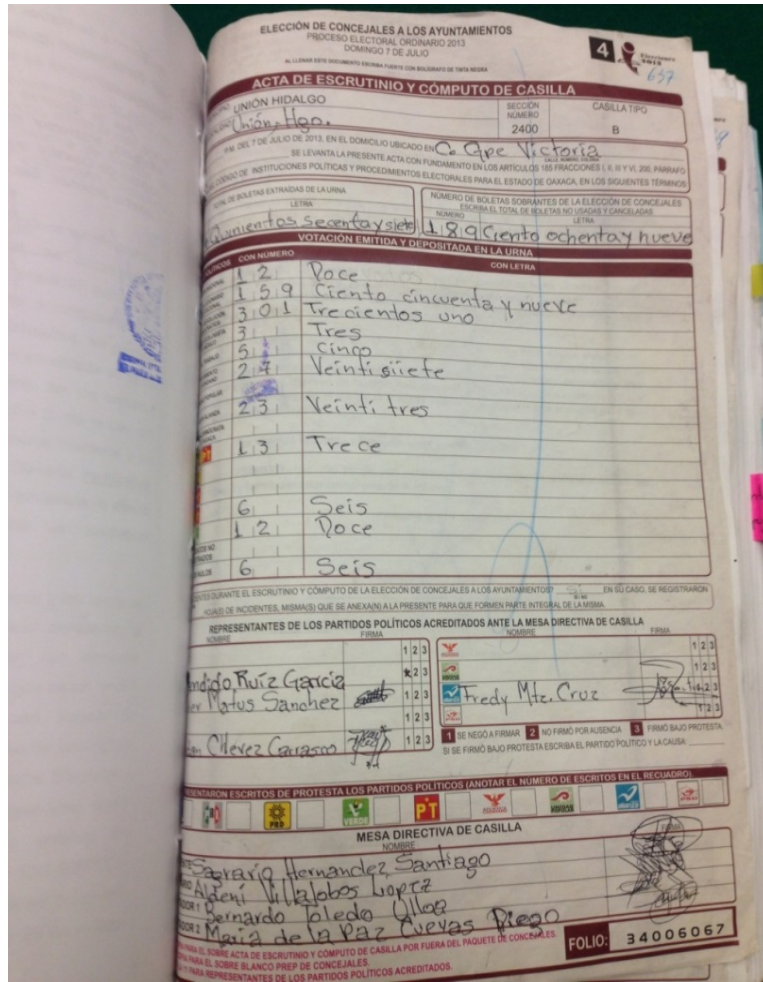 ELECCIÓN DE CONCEJALES A LOS AYUNTAMIENTOS
PROCESO ELECTORAL ORDINARIO 2013
DOMINGO 7 DE JULIO
AL LLENAR ESTE DOCUMENTO ESCRIBA FUERTE CON BOLÍGRAFO DE TINTA NEGRA
4
637
ACTA DE ESCRUTINIO Y CÓMPUTO DE CASILLA
UNIÓN HIDALGO
Unión, Hgo.
SECCIÓN NÚMERO
2400
CASILLA TIPO
B
P.M. DEL 7 DE JULIO DE 2013, EN EL DOMICILIO UBICADO EN C. Gpe Victoria
SE LEVANTA LA PRESENTE ACTA CON FUNDAMENTO EN LOS ARTÍCULOS 185 FRACCIONES I, II, III Y VI, 200, PÁRRAFO
CÓDIGO DE INSTITUCIONES POLÍTICAS Y PROCEDIMIENTOS ELECTORALES PARA EL ESTADO DE OAXACA, EN LOS SIGUIENTES TÉRMINOS
TOTAL DE BOLETAS EXTRAÍDAS DE LA URNA
LETRA
Quinientos secenta y siete
NÚMERO DE BOLETAS SOBRANTES DE LA ELECCIÓN DE CONCEJALES
ESCRIBA EL TOTAL DE BOLETAS NO USADAS Y CANCELADAS
NÚMERO LETRA
189 Ciento ochenta y nueve
VOTACIÓN EMITIDA Y DEPOSITADA EN LA URNA
CON NÚMERO CON LETRA
12 Doce
159 Ciento cincuenta y nueve
301 Trecientos uno
3 Tres
5 Cinco
27 Veintisiiete
23 Veinti tres
PT 13 Trece
6 Seis
12 Doce
6 Seis
DURANTE EL ESCRUTINIO Y CÓMPUTO DE LA ELECCIÓN DE CONCEJALES A LOS AYUNTAMIENTOS? EN SU CASO, SE REGISTRARON
HOJA(S) DE INCIDENTES, MISMA(S) QUE SE ANEXA(N) A LA PRESENTE PARA QUE FORMEN PARTE INTEGRAL DE LA MISMA
REPRESENTANTES DE LOS PARTIDOS POLÍTICOS ACREDITADOS ANTE LA MESA DIRECTIVA DE CASILLA
NOMBRE FIRMA NOMBRE FIRMA
1 2 3
Ruíz García
Matus Sanchez
Fredy Mtz. Cruz
Chevez Carrasco
1 SE NEGÓ A FIRMAR 2 NO FIRMÓ POR AUSENCIA 3 FIRMÓ BAJO PROTESTA
SI SE FIRMÓ BAJO PROTESTA ESCRIBA EL PARTIDO POLÍTICO Y LA CAUSA
ESCRITOS DE PROTESTA LOS PARTIDOS POLÍTICOS (ANOTAR EL NÚMERO DE ESCRITOS EN EL RECUADRO)
PRD VERDE PT
MESA DIRECTIVA DE CASILLA
NOMBRE FIRMA
Sagrario Hernandez Santiago
Aldení Villalobos Lopez
Bernardo Toledo Ulloa
Maria de la Paz Cuevas Diego
PARA EL SOBRE ACTA DE ESCRUTINIO Y CÓMPUTO DE CASILLA POR FUERA DEL PAQUETE DE CONCEJALES.
PARA EL SOBRE BLANCO PREP DE CONCEJALES.
PARA REPRESENTANTES DE LOS PARTIDOS POLÍTICOS ACREDITADOS.
FOLIO: 34006067